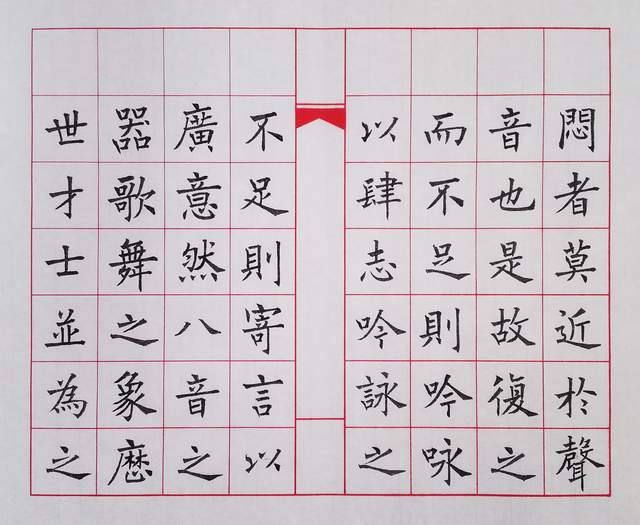 悶者莫近於聲
音也是故復之
而不足則吟咏
以肆志吟詠之
不足則寄言以
廣意然八音之
器歌舞之象歴
世才士並為之